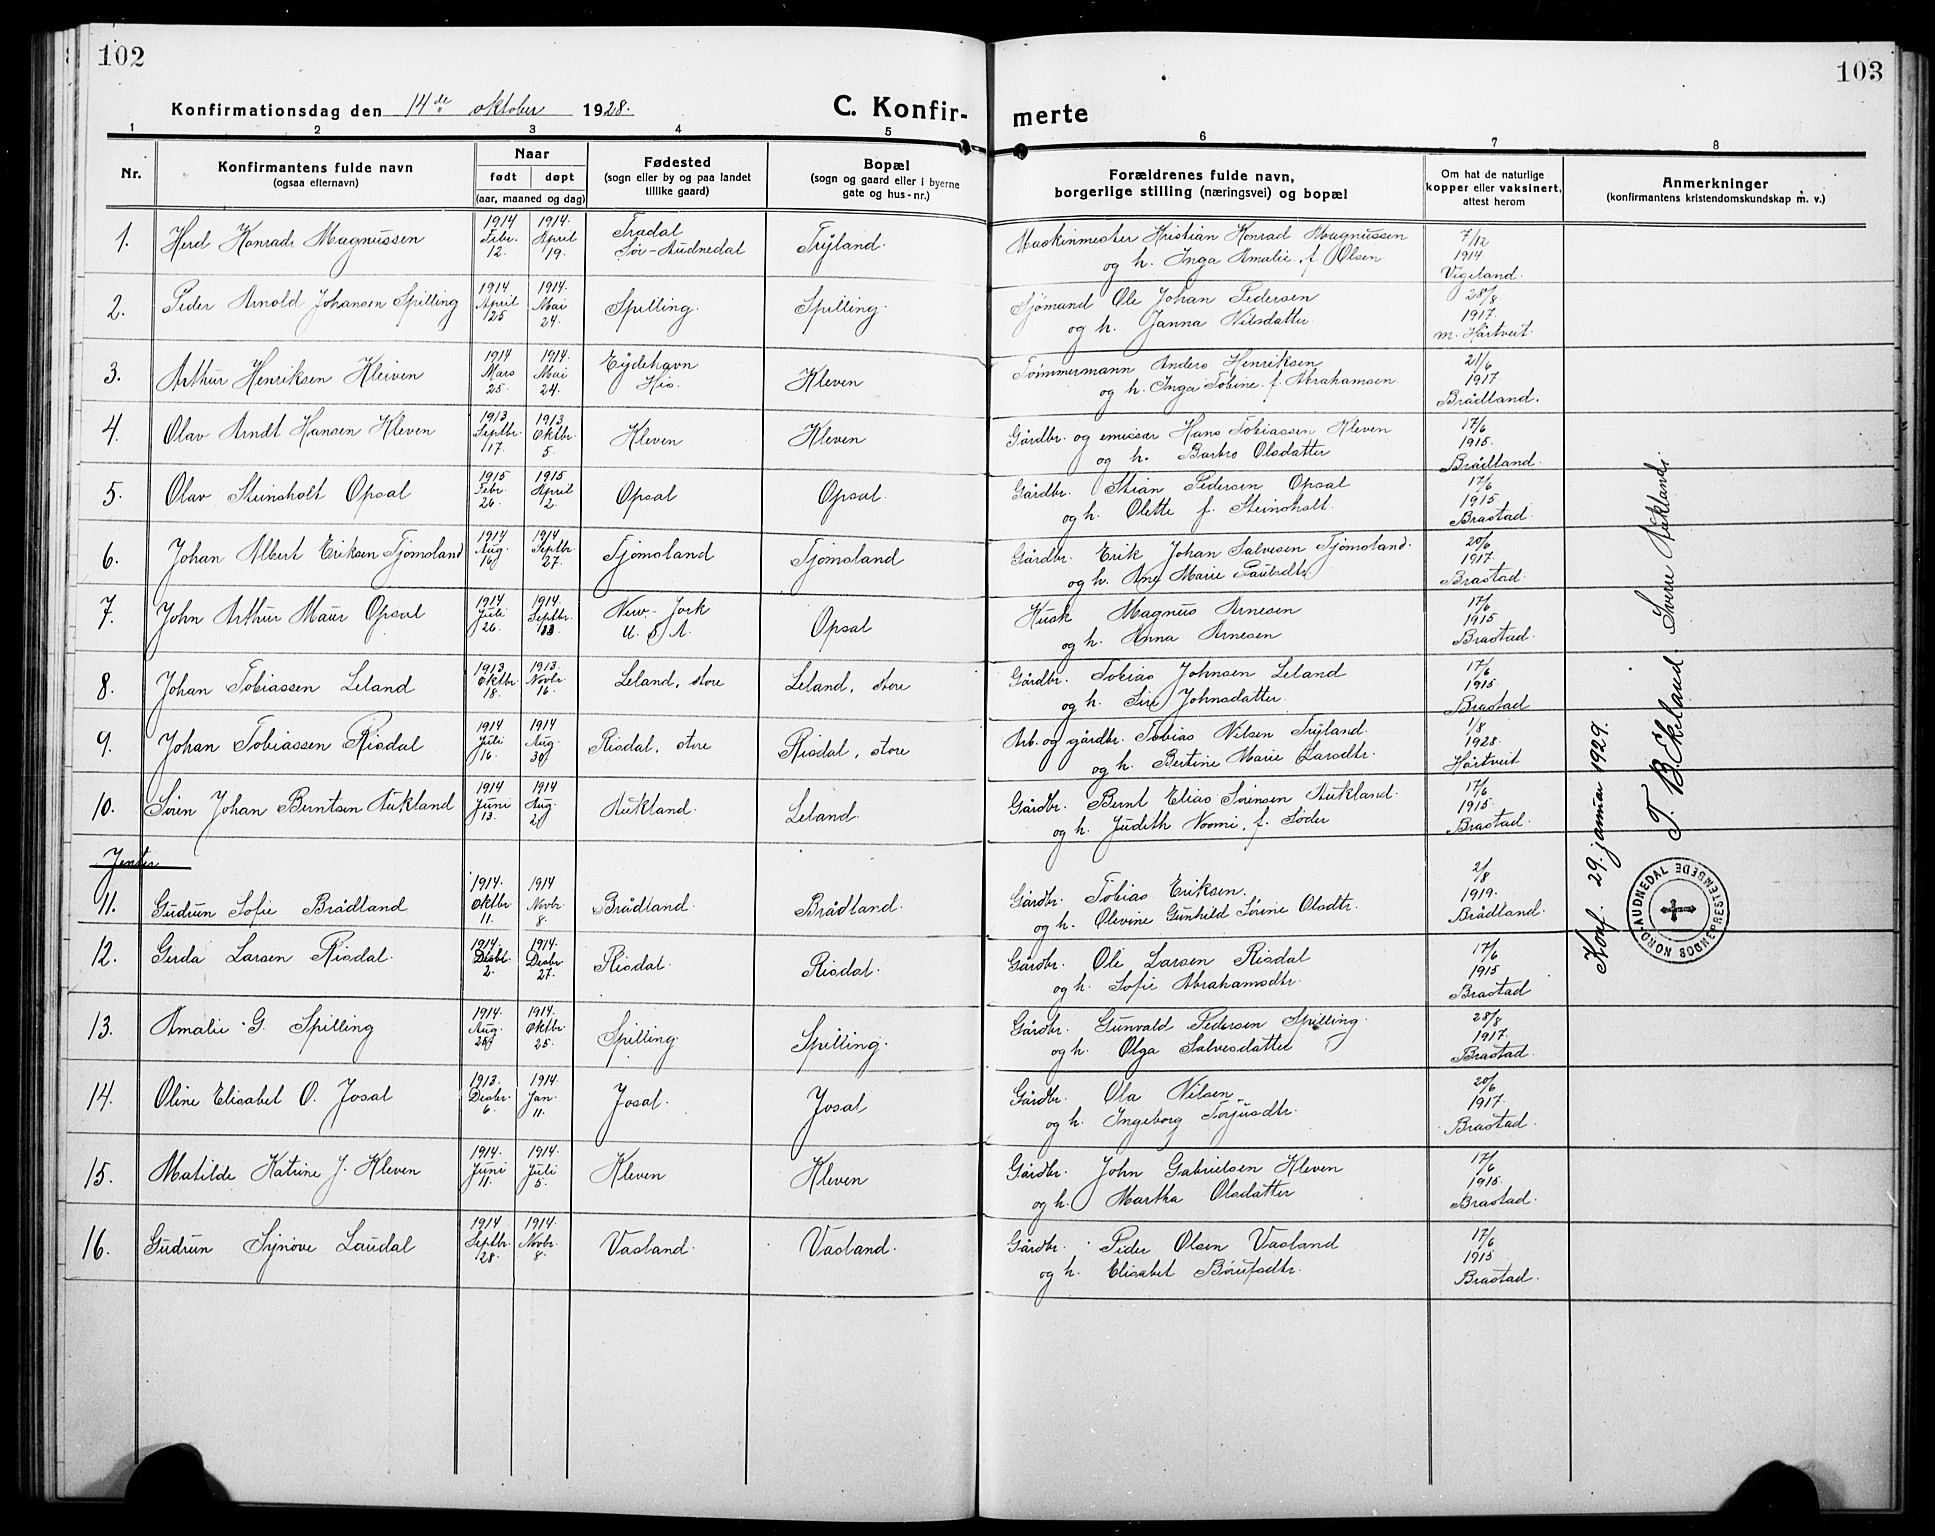 102
103
Konfirmationsdag den 14de oktober 1928.
C. Konfir-
merte
1 2 3 4 5 6 7 8
Nr.
Konfirmantens fulde navn
(ogsaa efternavn)
Naar
født døpt
(aar, maaned og dag)
Fødested
(sogn eller by og paa landet
tillike gaard)
Bopæl
(sogn og gaard eller i byerne
gate og hus-nr.)
Forældrenes fulde navn,
borgerlige stilling (næringsvei) og bopæl
Om hat de naturlige
kopper eller vaksinert,
attest herom
Anmerkninger
(konfirmantens kristendomskundskap m. v.)
1. Konrad Magnussen 1914 Febr. 12. 1914. April 19. Sør-Audnedal Tryland. Maskinmester Kristian Konrad Magnussen
og h. Inga Amalie, f. Olsen 7/12 1914 Vigeland.
2. Peder Arnold Johansen Spilling 1914 April 25 1914. Mai 24. Spilling. Spilling. Sjømand Ole Johan Pedersen
og h. Janna Nilsdatter. 28/8 1917. m. Hårtveit.
3. Arthur Henriksen Kleiven 1914 Mars 25. 1914. Mai 24. Eydehavn Kleven Tømmermann Anders Henriksen
og h. Inga Tobine f. Abrahamsen. 21/6 1917. Brådland.
4. Olav Arndt Hansen Kleven 1913 Septbr. 17. 1913. Oktbr. 5. Kleven Kleven Gårdbr. og emissær Hans Tobiassen Kleven
og h. Barbro Olsdatter 17/6 1915. Brådland.
5. Olav Steinsholt Opsal 1915 Febr. 26. 1915 April 2. Opsal Opsal. Gårdbr. Stian Pedersen Opsal
og h. Olette f. Steinsholt. 17/6 1915. Brastad
6. Johan Albert Eriksen Tjømsland 1914 Aug. 16 1914. Septbr. 27. Tjømsland Tjømsland Gårdbr. Erik Johan Salvesen Tjømsland.
og h. Ane Marie Paulsdtr. 20/6 1917. Brastad.
7. John Arthur Maur Opsal 1914 Juli 26. 1914. Septbr. New-Jork
U. S A. Opsal Husk Magnus Arnesen
og h. Anna Arnesen 17/6 1915 Brastad.
8. Johan Tobiassen Leland 1913. Oktbr. 18. 1913. Novbr. 16. Leland, store Leland, store Gårdbr. Tobias Johnsen Leland
og h. Siri Johnsdatter. 17/6 1915 Brastad
9. Johan Tobiassen Risdal 1914 Juli 16. 1914 Aug. 30 Risdal, store Risdal, store Arb. og gårdbr. Tobias Nilsen Tryland.
og h. Bertine Marie Larsdtr. 1/8 1928. Hårtveit
10. Søren Johan Berntsen Aukland 1914 Juni 13. 1914 Aug. 2 Aukland. Leland. Gårdbr. Bernt Elias Sørensen Aukland.
og h. Judith Noomi, f. Søder 17/6 1915. Brastad.
Jenter
11. Gudrun Sofie Brådland 1914. Oktbr 11. 1914 Novbr. 8. Brådland. Brådland. Gårdbr. Tobias Eriksen.
og h. Olevine Gunhild Sørine Olsdtr. 2/8 1919. Brådland.
12. Gerda Larsen Risdal. 1914. Desbr. 2. 1914. Desbr 27. Risdal. Risdal. Gårdbr. Ole Larsen Risdal
og h. Sofie Abrahamsdtr. 17/6 1915 Brastad
13. Amalie G. Spilling 1914. Aug. 25 1914. Oktbr. 25. Spilling. Spilling. Gårdbr. Gunvald Pedersen Spilling.
og h. Olga Salvesdatter 28/8 1917. Brastad.
14. Oline Elisabet O. Josal 1913. Desbr. 6. 1914. Jan. 11. Josal. Josal Gårdbr. Ola Nilsen
og h. Ingeborg Torjusdtr. 20/6 1917. Brastad.
15. Matilde Katrine J. Kleven 1914. Juni 11. 1914. Juli 5. Kleven Kleven Gårdbr. John Gabrielsen Kleven
og h. Martha Olsdatter 17/6 1915. Brastad.
16. Gudrun Synøve Laudal 1914 Septbr. 28. 1914. Novbr. 8. Vasland. Vasland. Gårdbr. Peder Olsen Vasland
og h. Elisabet 17/6 1915 Brastad.
Konf. 29. januar 1929.
T. B. Ekland Sverre Aukland
NORD-AUDNEDAL SOGNEPRESTEMBEDE